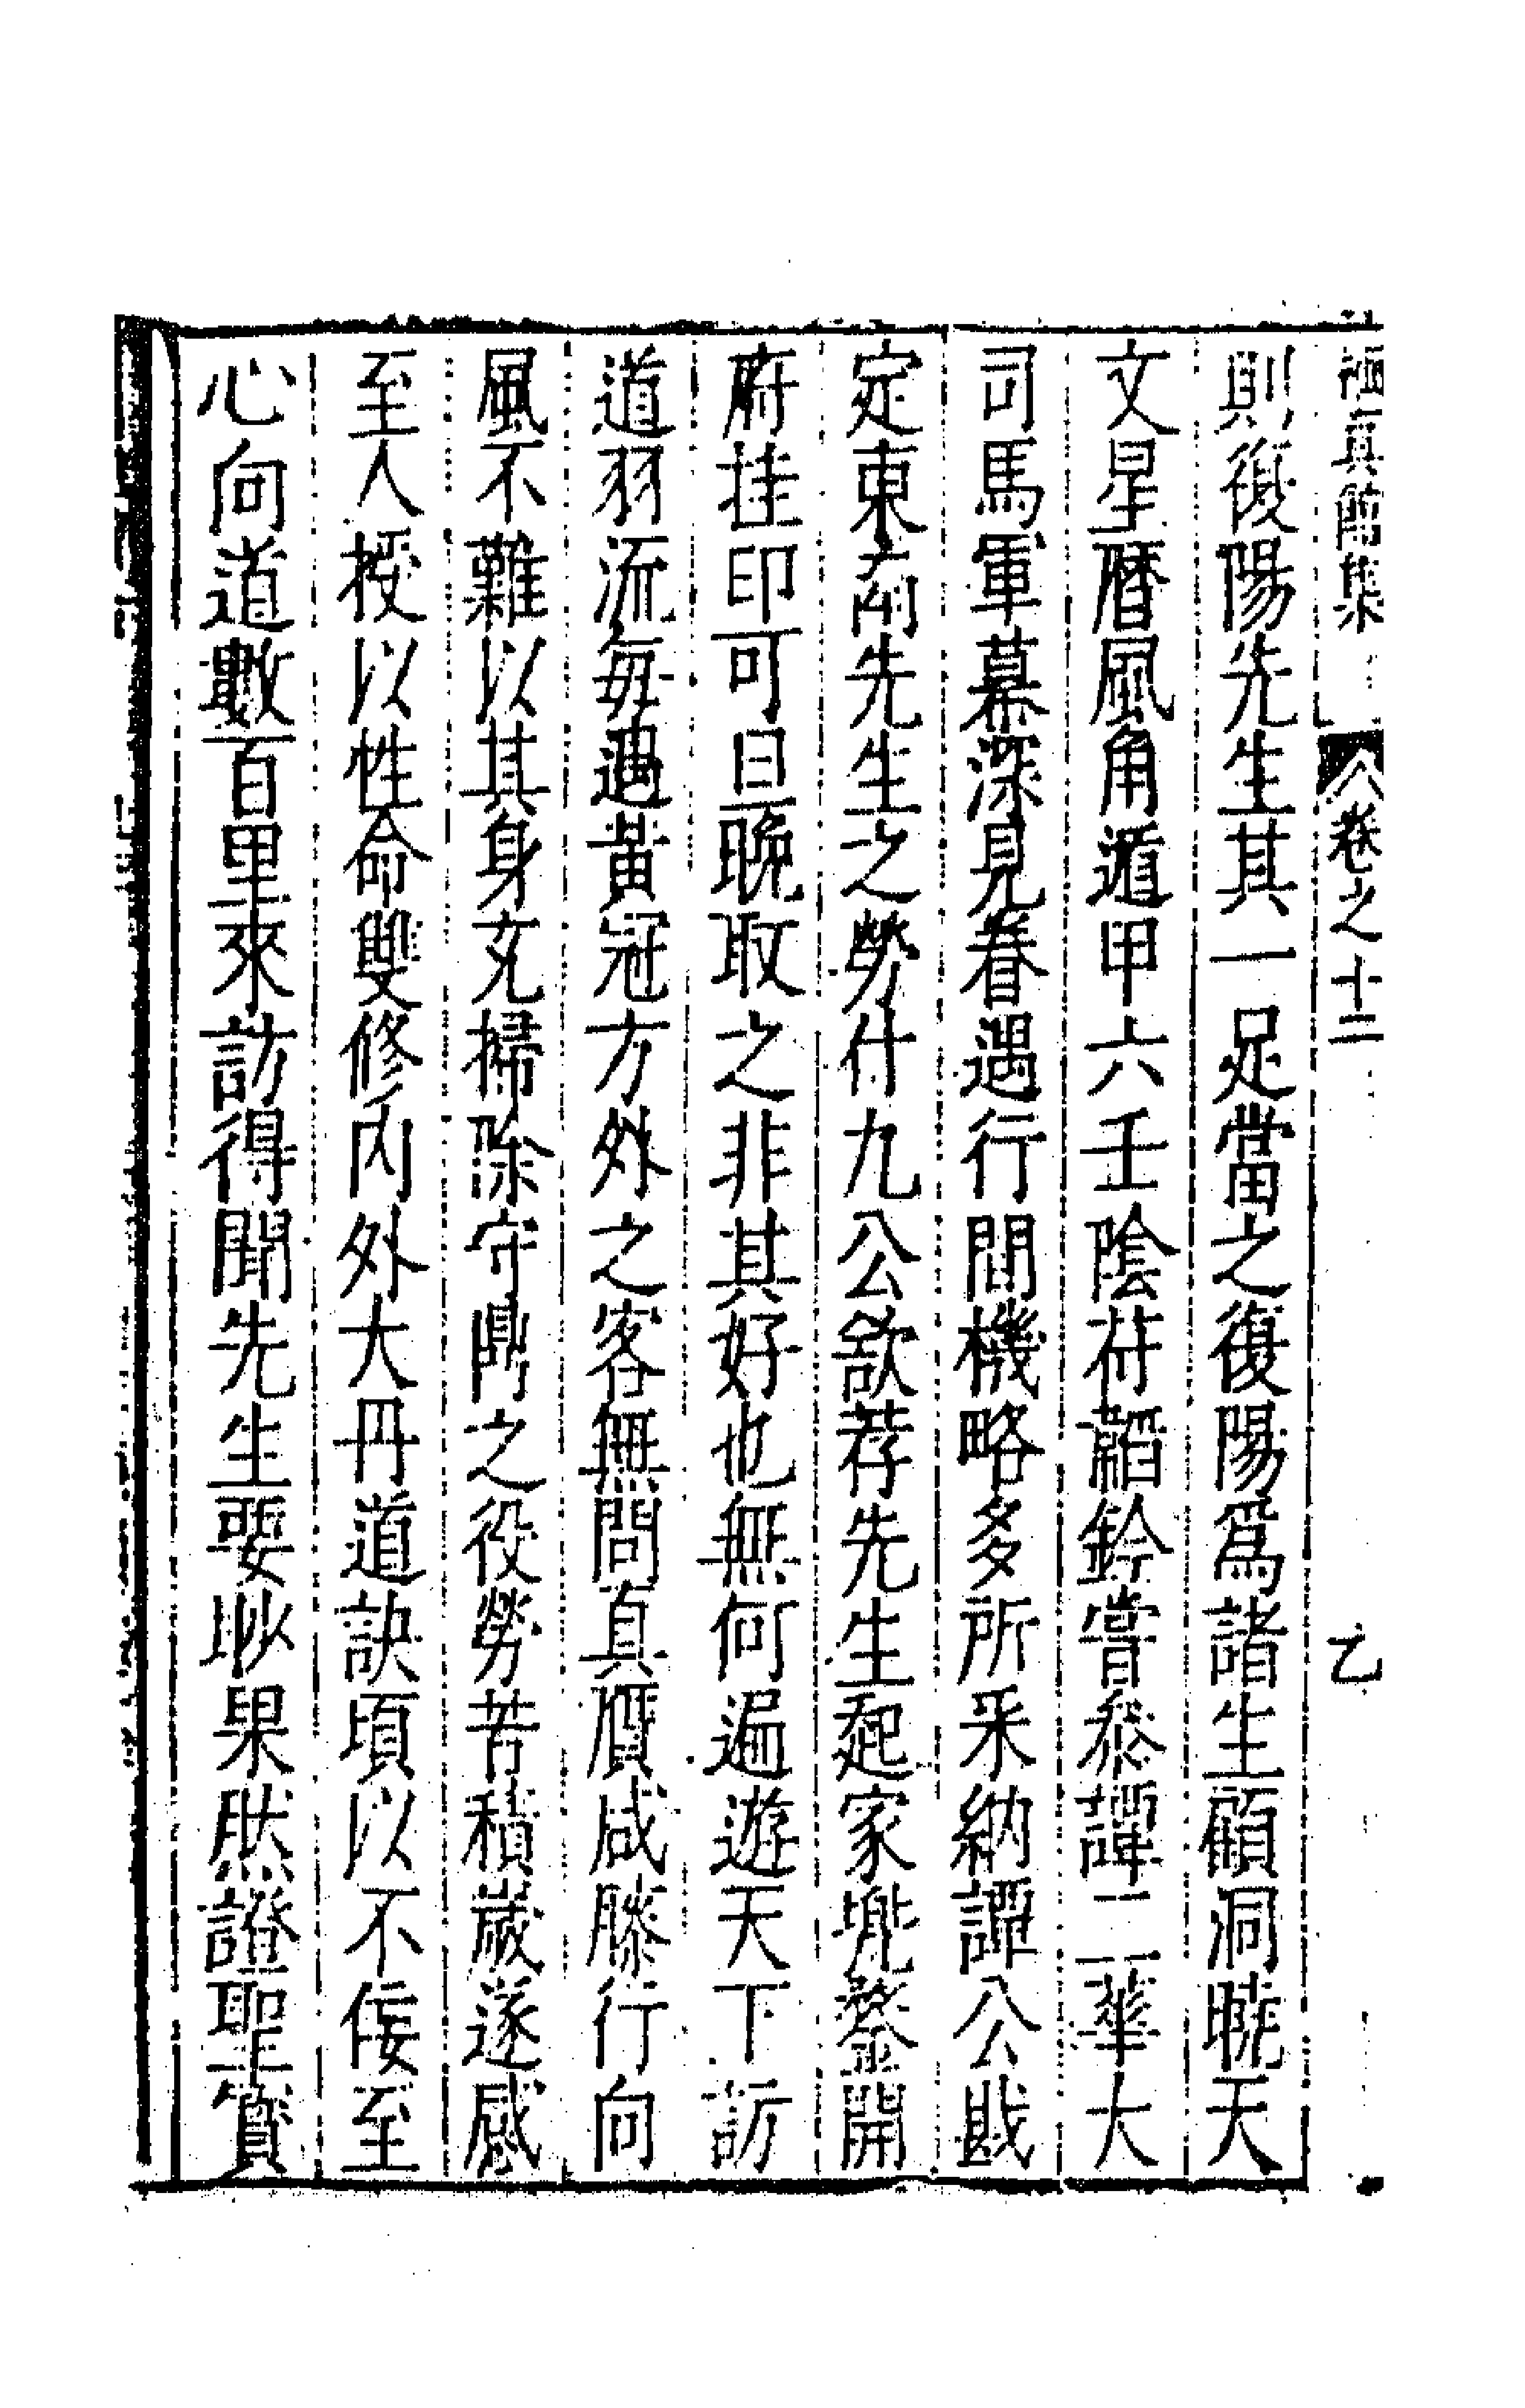 棲真館集 卷之十二 乙
則復陽先生其一足當之復陽爲諸生顧洞曉天
文星曆風角遁甲六壬陰符韜鈐嘗叅譚二華大
司馬軍幕深見眷遇行間機略多所采納譚公戡
定東南先生之勞什九公欲荐先生起家兜鍪開
府挂印可旦晚取之非其好也無何遍遊天下訪
道羽流每遇黃冠方外之客無問真贋咸膝行向
風不難以其身充掃除守鼎之役勞苦積歲遂感
至人授以性命雙修內外大丹道訣頃以不佞至
心向道數百里來訪得聞先生要玅果然證聖寔